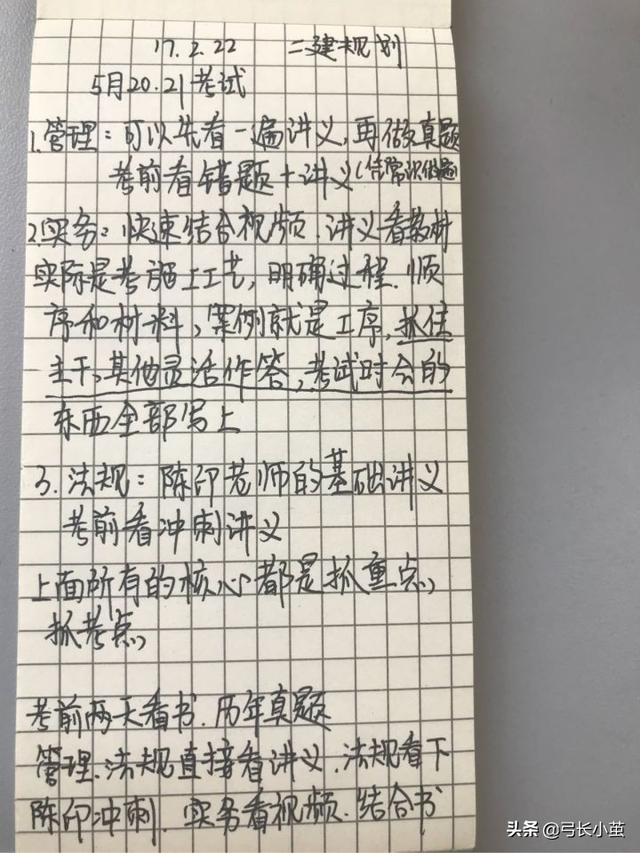 17.2.22 二建规划
5月20.21考试
1.管理：可以先看一遍讲义，再做真题
考前看错题+讲义(结常识做题
2.实务：快速结合视频.讲义看教材
实际是考施工工艺，明确过程.顺
序和材料，案例就是工序，抓住
主干，其他灵活作答，考试时会的
东西全部写上
3.法规：陈印老师的基础讲义
考前看冲刺讲义
上面所有的核心都是抓重点，
抓考点，
考前两天看书.历年真题
管理.法规直接看讲义.法规看下
陈印冲刺.实务看视频.结合书
头条@弓长小茧